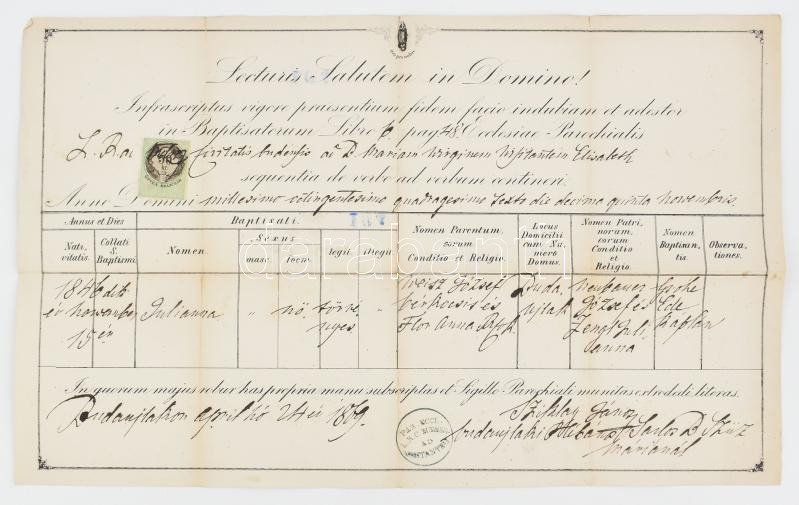 Lecturis Salutem in Domino!
Infrascriptus vigore praesentium fidem facio indubiam et adestor
in Baptisatorum Libro 6. pag 48. Ecclesiae Parochialis
L. R. ac civitatis budensis ad B. Mariam virginem visitantem Elisabeth
sequentia de verbo ad verbum contineri.
Anno Domini millesimo octingentesimo quadragesimo sexto die decima quinta novembris
Annus et Dies
Baptisati.
Nativitatis.
Collati S. Baptismi
Nomen.
Sexus
masc.
foem.
legit.
illegit.
Nomen Parentum, eorum Conditio et Religio.
Locus Domicilii cum Numero Domus.
Nomen Patrinorum, eorum Conditio et Religio.
Nomen Baptisantis.
Observationes.
1846
november
15
Julianna
"
nő
törvényes
"
Weisz József
és
Flor Anna
Buda
ujlak
Neubauer
József és
Zengl Julianna
Grohe
Ede
Káplán
In quorum majus robur has propria manu subscriptas et Sigillo Parochiali munitas extradedi literas.
Budaujlakon april hó 24 én 1869.
János
budaujlaki Sarlós B. Szűz
Máriánál
darabanth